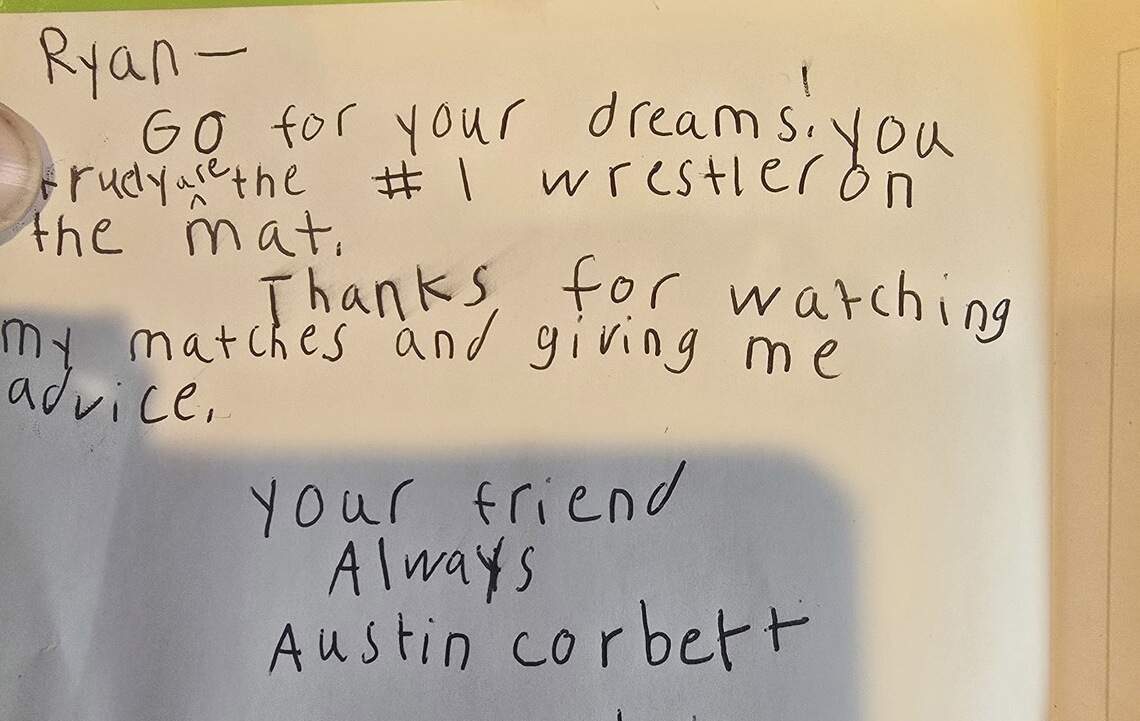 Ryan—
GO for your dreams! you
truely are the # 1 wrestler on
the mat.
Thanks for watching
my matches and giving me
advice.
your friend
Always
Austin corbett